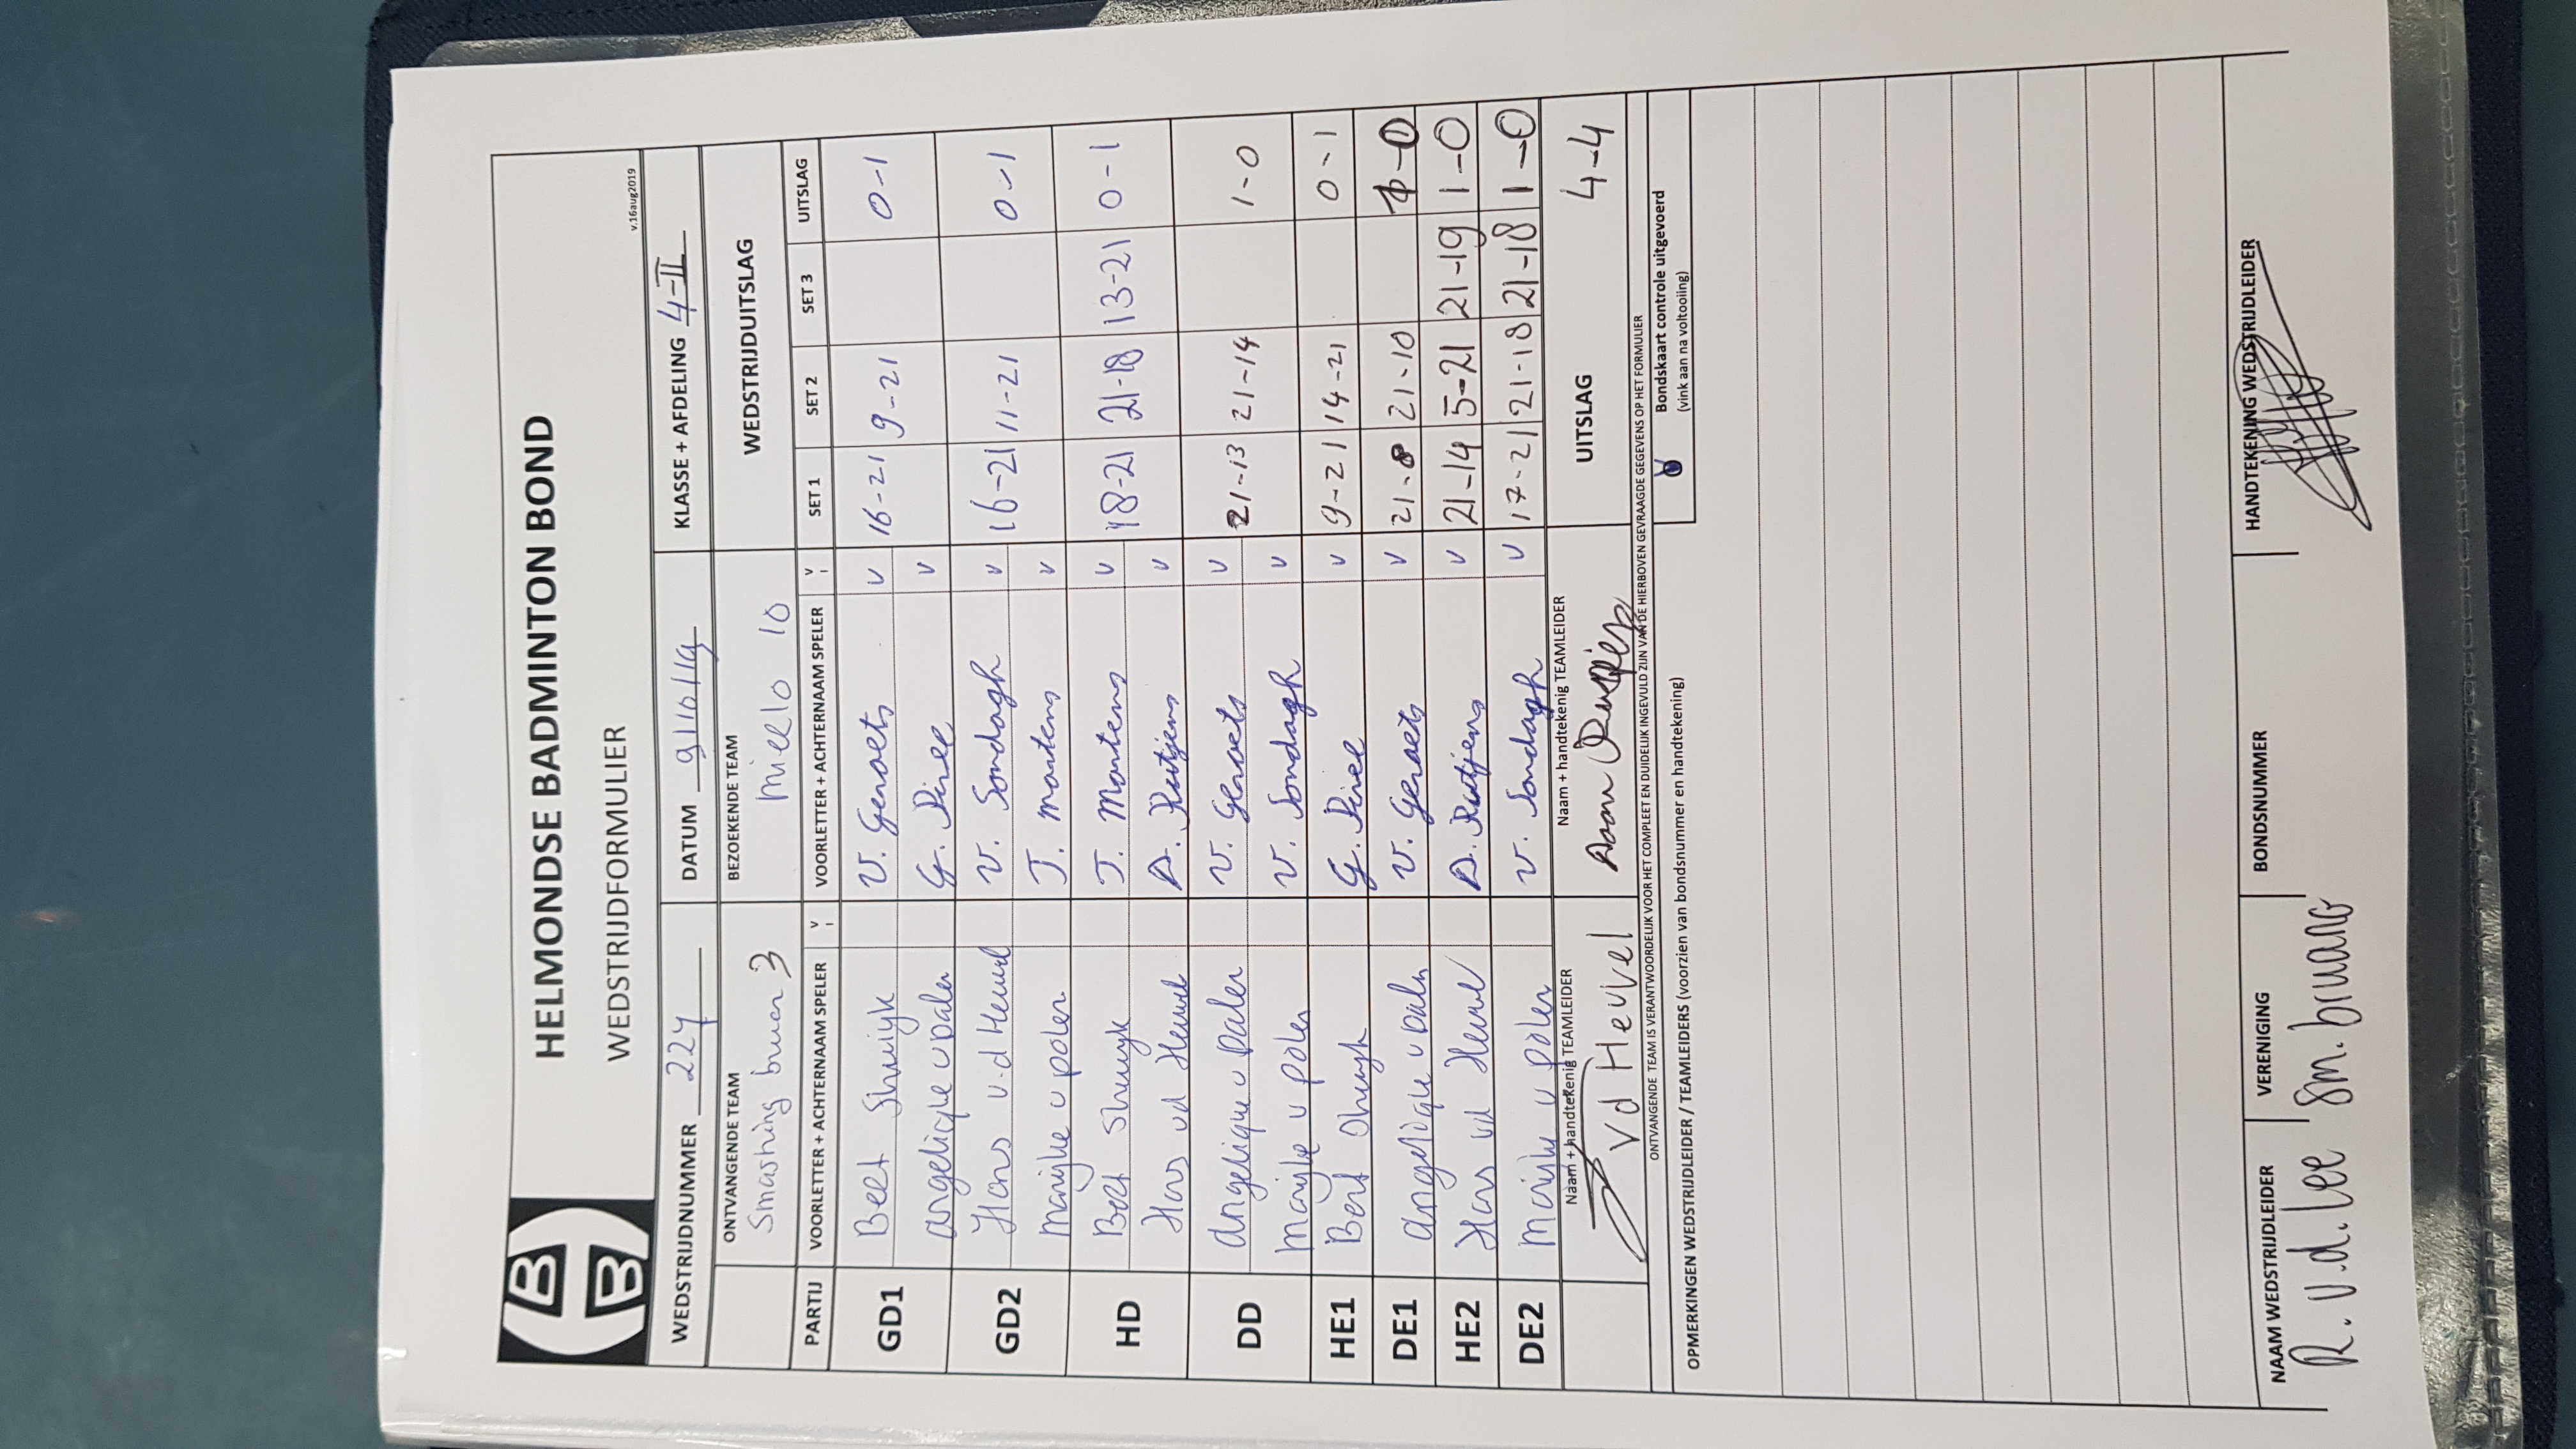 HELMONDSE BADMINTON BOND
WEDSTRIJDFORMULIER
v.16aug2019
WEDSTRIJDNUMMER 224 DATUM 9/10/19 KLASSE + AFDELING 4-II
ONTVANGENDE TEAM BEZOEKENDE TEAM WEDSTRIJDUITSLAG
Smashing 3 Miello 10
PARTIJ VOORLETTER + ACHTERNAAM SPELER V VOORLETTER + ACHTERNAAM SPELER V SET 1 SET 2 SET 3 UITSLAG
GD1 V. Geraets v 16-21 9-21 0-1
angelique v Dalen G. Pinee v
GD2 Hans v.d Heuvel V. Sondagh v 16-21 11-21 0-1
Marijke v polen J. Martens v
HD J. Martens v 18-21 21-18 13-21 0-1
Hans vd Heuvel v
DD angelique v Dalen V. Geraets v 21-13 21-14 1-0
Marijke v polen V. Sondagh v
HE1 Bert G. Pinee v 9-21 14-21 0-1
DE1 angelique v Dalen V. Geraets v 21-8 21-10 1-0
HE2 Hans vd Heuvel v 21-14 5-21 21-19 1-0
DE2 Marijke v polen V. Sondagh v 17-21 21-18 21-18 1-0
Naam + handtekenig TEAMLEIDER Naam + handtekenig TEAMLEIDER UITSLAG 4-4
vd Heuvel
ONTVANGENDE TEAM IS VERANTWOORDELIJK VOOR HET COMPLEET EN DUIDELIJK INGEVULD ZIJN VAN DE HIERBOVEN GEVRAAGDE GEGEVENS OP HET FORMULIER
Bondskaart controle uitgevoerd
(vink aan na voltooiing)
OPMERKINGEN WEDSTRIJDLEIDER / TEAMLEIDERS (voorzien van bondsnummer en handtekening)
NAAM WEDSTRIJDLEIDER VERENIGING BONDSNUMMER HANDTEKENING WEDSTRIJDLEIDER
R. v.d. Lee Sm. bruano